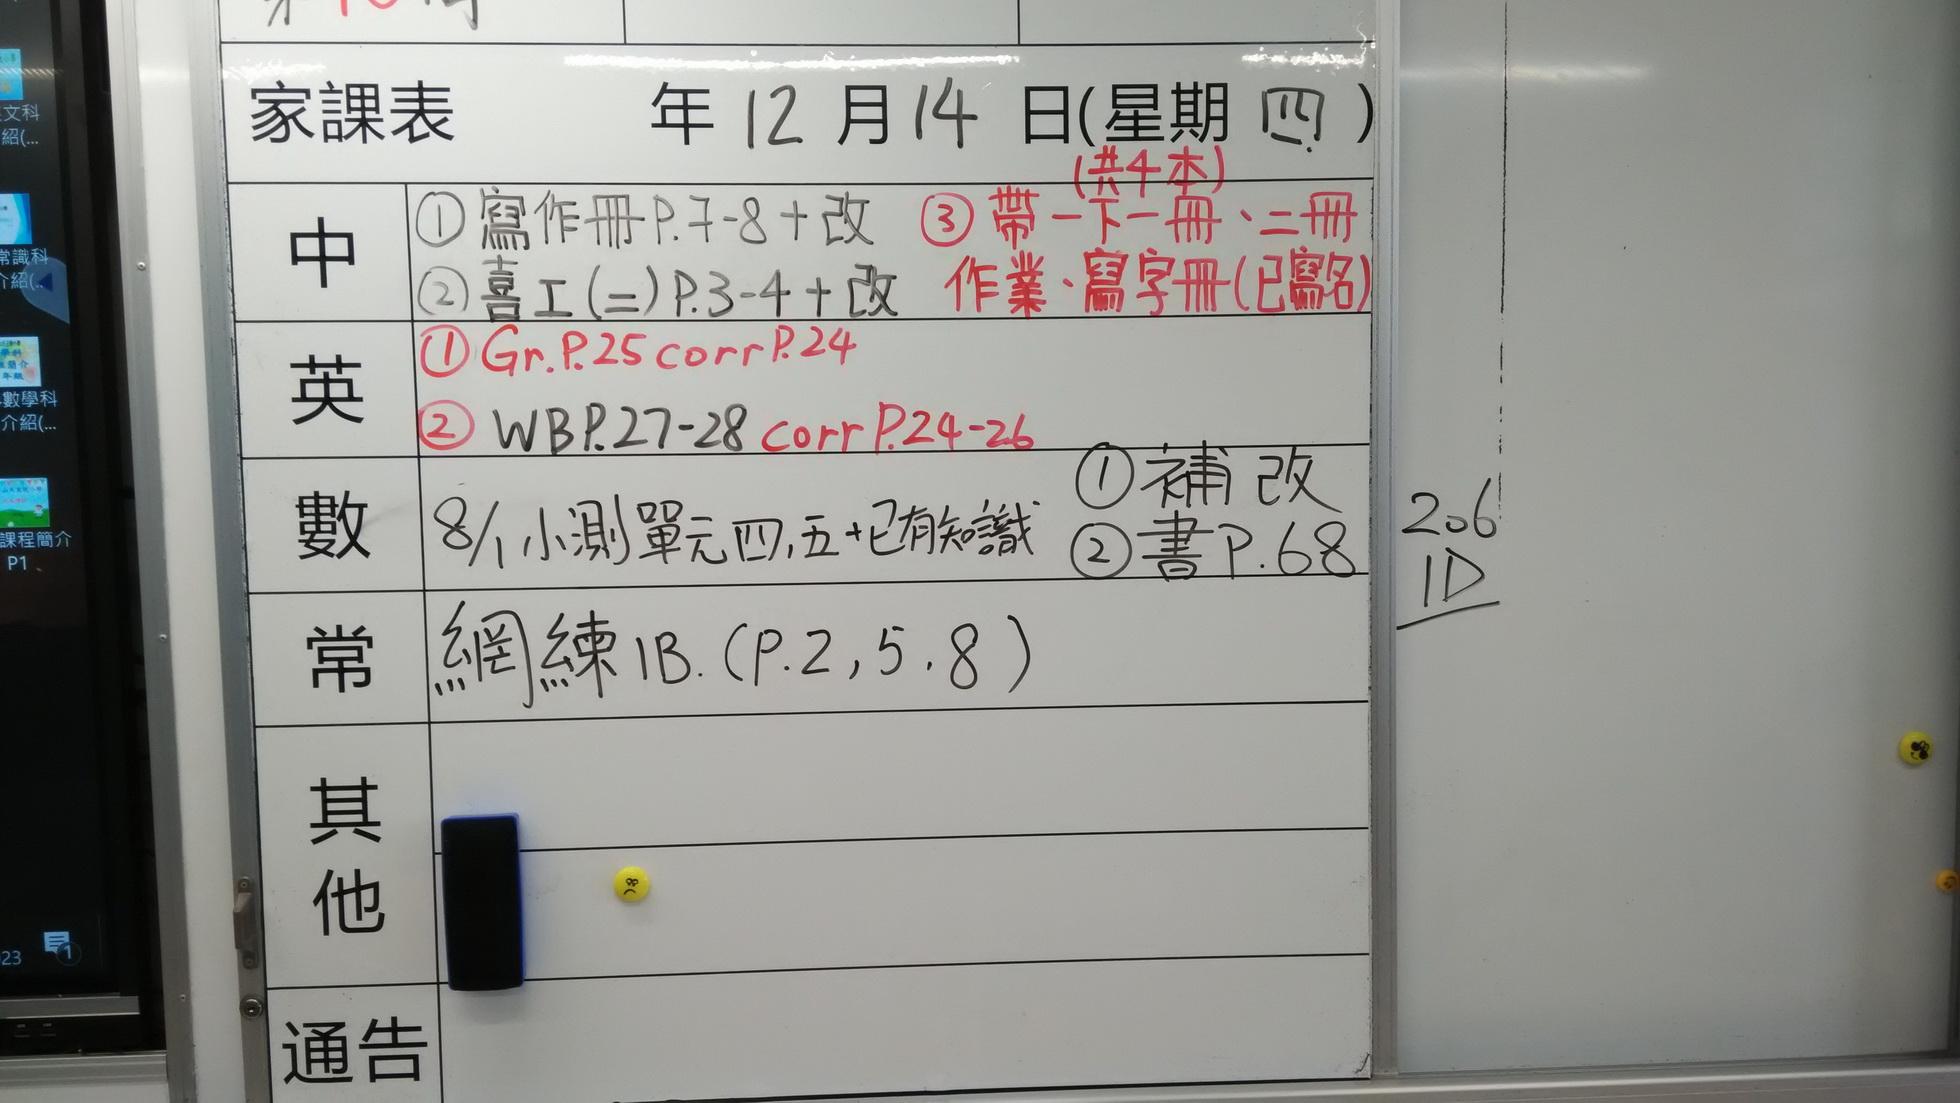 第10周
家課表 年 12 月 14 日(星期 四 )
中
① 寫作冊P.7-8+改
② 喜工(二)P.3-4+改
(共4本)
③ 帶一下一冊、二冊
作業、寫字冊(已寫名)
英
① Gr.P.25 corr P.24
② WBP.27-28 corr P.24-26
數
8/1小測單元四,五+已有知識
① 補改
② 書P.68
常
網練1B.(P.2,5,8)
其他
通告
206
1D
文科
紹(...
常識科
介紹(..
數學科
介紹(...
課程簡介
P1
23
1